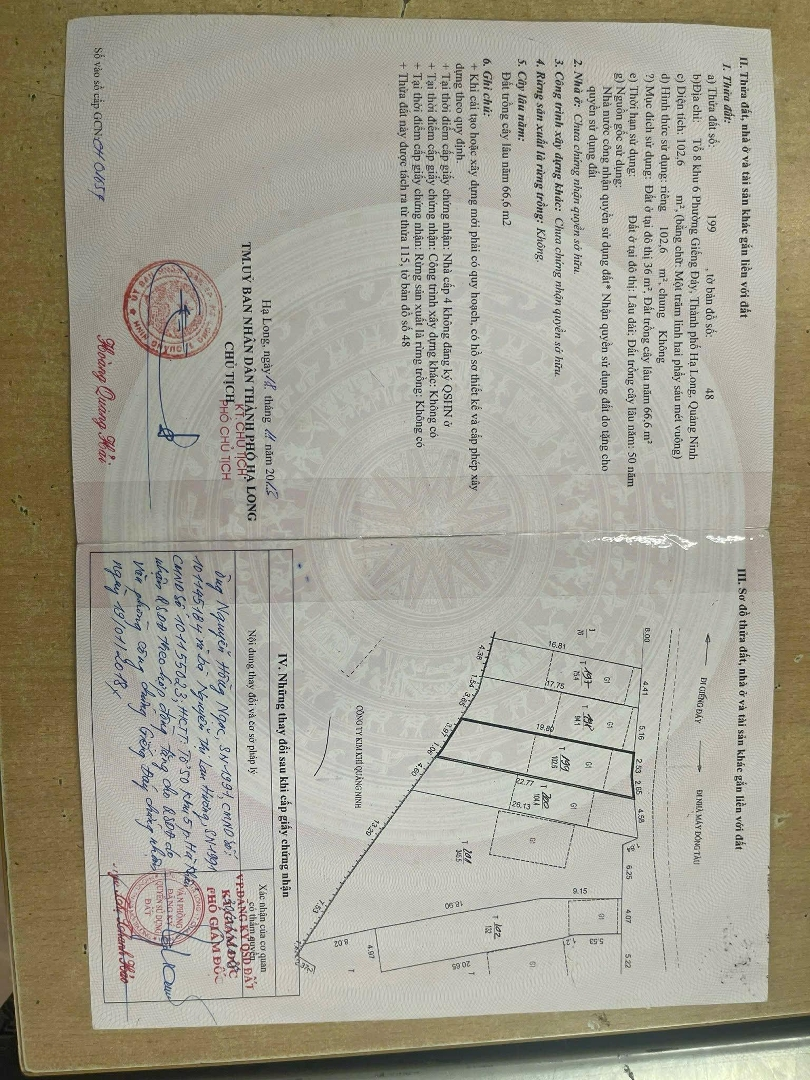 II. Thửa đất, nhà ở và tài sản khác gắn liền với đất
1. Thửa đất:
a) Thửa đất số: 199 , tờ bản đồ số: 48
b)Địa chỉ: Tổ 8 khu 6 Phường Giếng Đáy, Thành phố Hạ Long, Quảng Ninh
c) Diện tích: 102,6 m², (bằng chữ: Một trăm linh hai phẩy sáu mét vuông)
d) Hình thức sử dụng: riêng 102,6 m², chung Không
?) Mục đích sử dụng: Đất ở tại đô thị 36 m², Đất trồng cây lâu năm 66,6 m²
e) Thời hạn sử dụng: Đất ở tại đô thị: Lâu dài; Đất trồng cây lâu năm: 50 năm
g) Nguồn gốc sử dụng:
Nhà nước công nhận quyền sử dụng đất* Nhận quyền sử dụng đất do tặng cho
quyền sử dụng đất
2. Nhà ở: Chưa chứng nhận quyền sở hữu
3. Công trình xây dựng khác: Chưa chứng nhận quyền sở hữu.
4. Rừng sản xuất là rừng trồng: Không.
5. Cây lâu năm:
Đất trồng cây lâu năm 66,6 m2
6. Ghi chú:
+ Khi cải tạo hoặc xây dựng mới phải có quy hoạch, có hồ sơ thiết kế và cấp phép xây
dựng theo quy định.
+ Tại thời điểm cấp giấy chứng nhận: Nhà cấp 4 không đăng ký QSHN ở
+ Tại thời điểm cấp giấy chứng nhận: Công trình xây dựng khác: Không có
+ Tại thời điểm cấp giấy chứng nhận: Rừng sản xuất là rừng trồng: Không có
+ Thửa đất này được tách ra từ thửa 115, tờ bản đồ số 48
Hạ Long, ngày 18 tháng 11 năm 2015
TM.UỶ BAN NHÂN DÂN THÀNH PHỐ HẠ LONG
CHỦ TỊCH
KT.CHỦ TỊCH
PHÓ CHỦ TỊCH
Hoàng Quang Hải
Số vào sổ cấp GCN:
III. Sơ đồ thửa đất, nhà ở và tài sản khác gắn liền với đất
ĐI GIẾNG ĐÁY
ĐI NHÀ MÁY ĐÓNG TÀU
8.00 4.41 5.16 2.53 2.65 4.58 6.25 4.07 5.22
16.81 17.75 19.80 22.77 26.13 9.15 5.53
G1 G1 G1 G1 G1
T 197 75.4
T 94.1
T 199 102.6
T 200 104.4
201 345.5
T 102 152
4.38 1.54 3.85 3.97 1.06 4.60 13.29 7.53
18.90 20.65 4.97 8.02
CÔNG TY KIM KHÍ QUẢNG NINH
IV. Những thay đổi sau khi cấp giấy chứng nhận
Nội dung thay đổi và cơ sở pháp lý
Xác nhận của cơ quan
có thẩm quyền
Ông Nguyễn Hồng Ngọc, SN-1991, CMND số:
101145184 và bà Nguyễn Thị Lan Hương, SN-1991
CMND số 101155023; HKTT: Tổ 50 khu 5 p. Hà
nhận QSDĐ theo hợp đồng tặng cho QSDĐ do
Văn phòng công chứng Giếng Đáy chứng nhận
ngày 19/01/2018
VP.ĐĂNG KÝ QSD ĐẤT
KT.GIÁM ĐỐC
PHÓ GIÁM ĐỐC
VĂN PHÒNG
ĐĂNG KÝ
QUYỀN SỬ DỤNG
ĐẤT